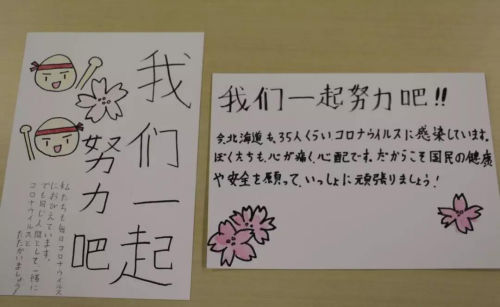 我们一起
努力吧
私たちも毎日コロナウイルス
におびえています。
でも同じ人間として一緒に
コロナウイルスと
たたかいましょう!
我们一起努力吧!!
今北海道も、35人くらいコロナウイルスに感染しています。
ぼくたちも、心が痛く心配です。だからこそ国民の健康
や安全を願って、いっしょに頑張りましょう!